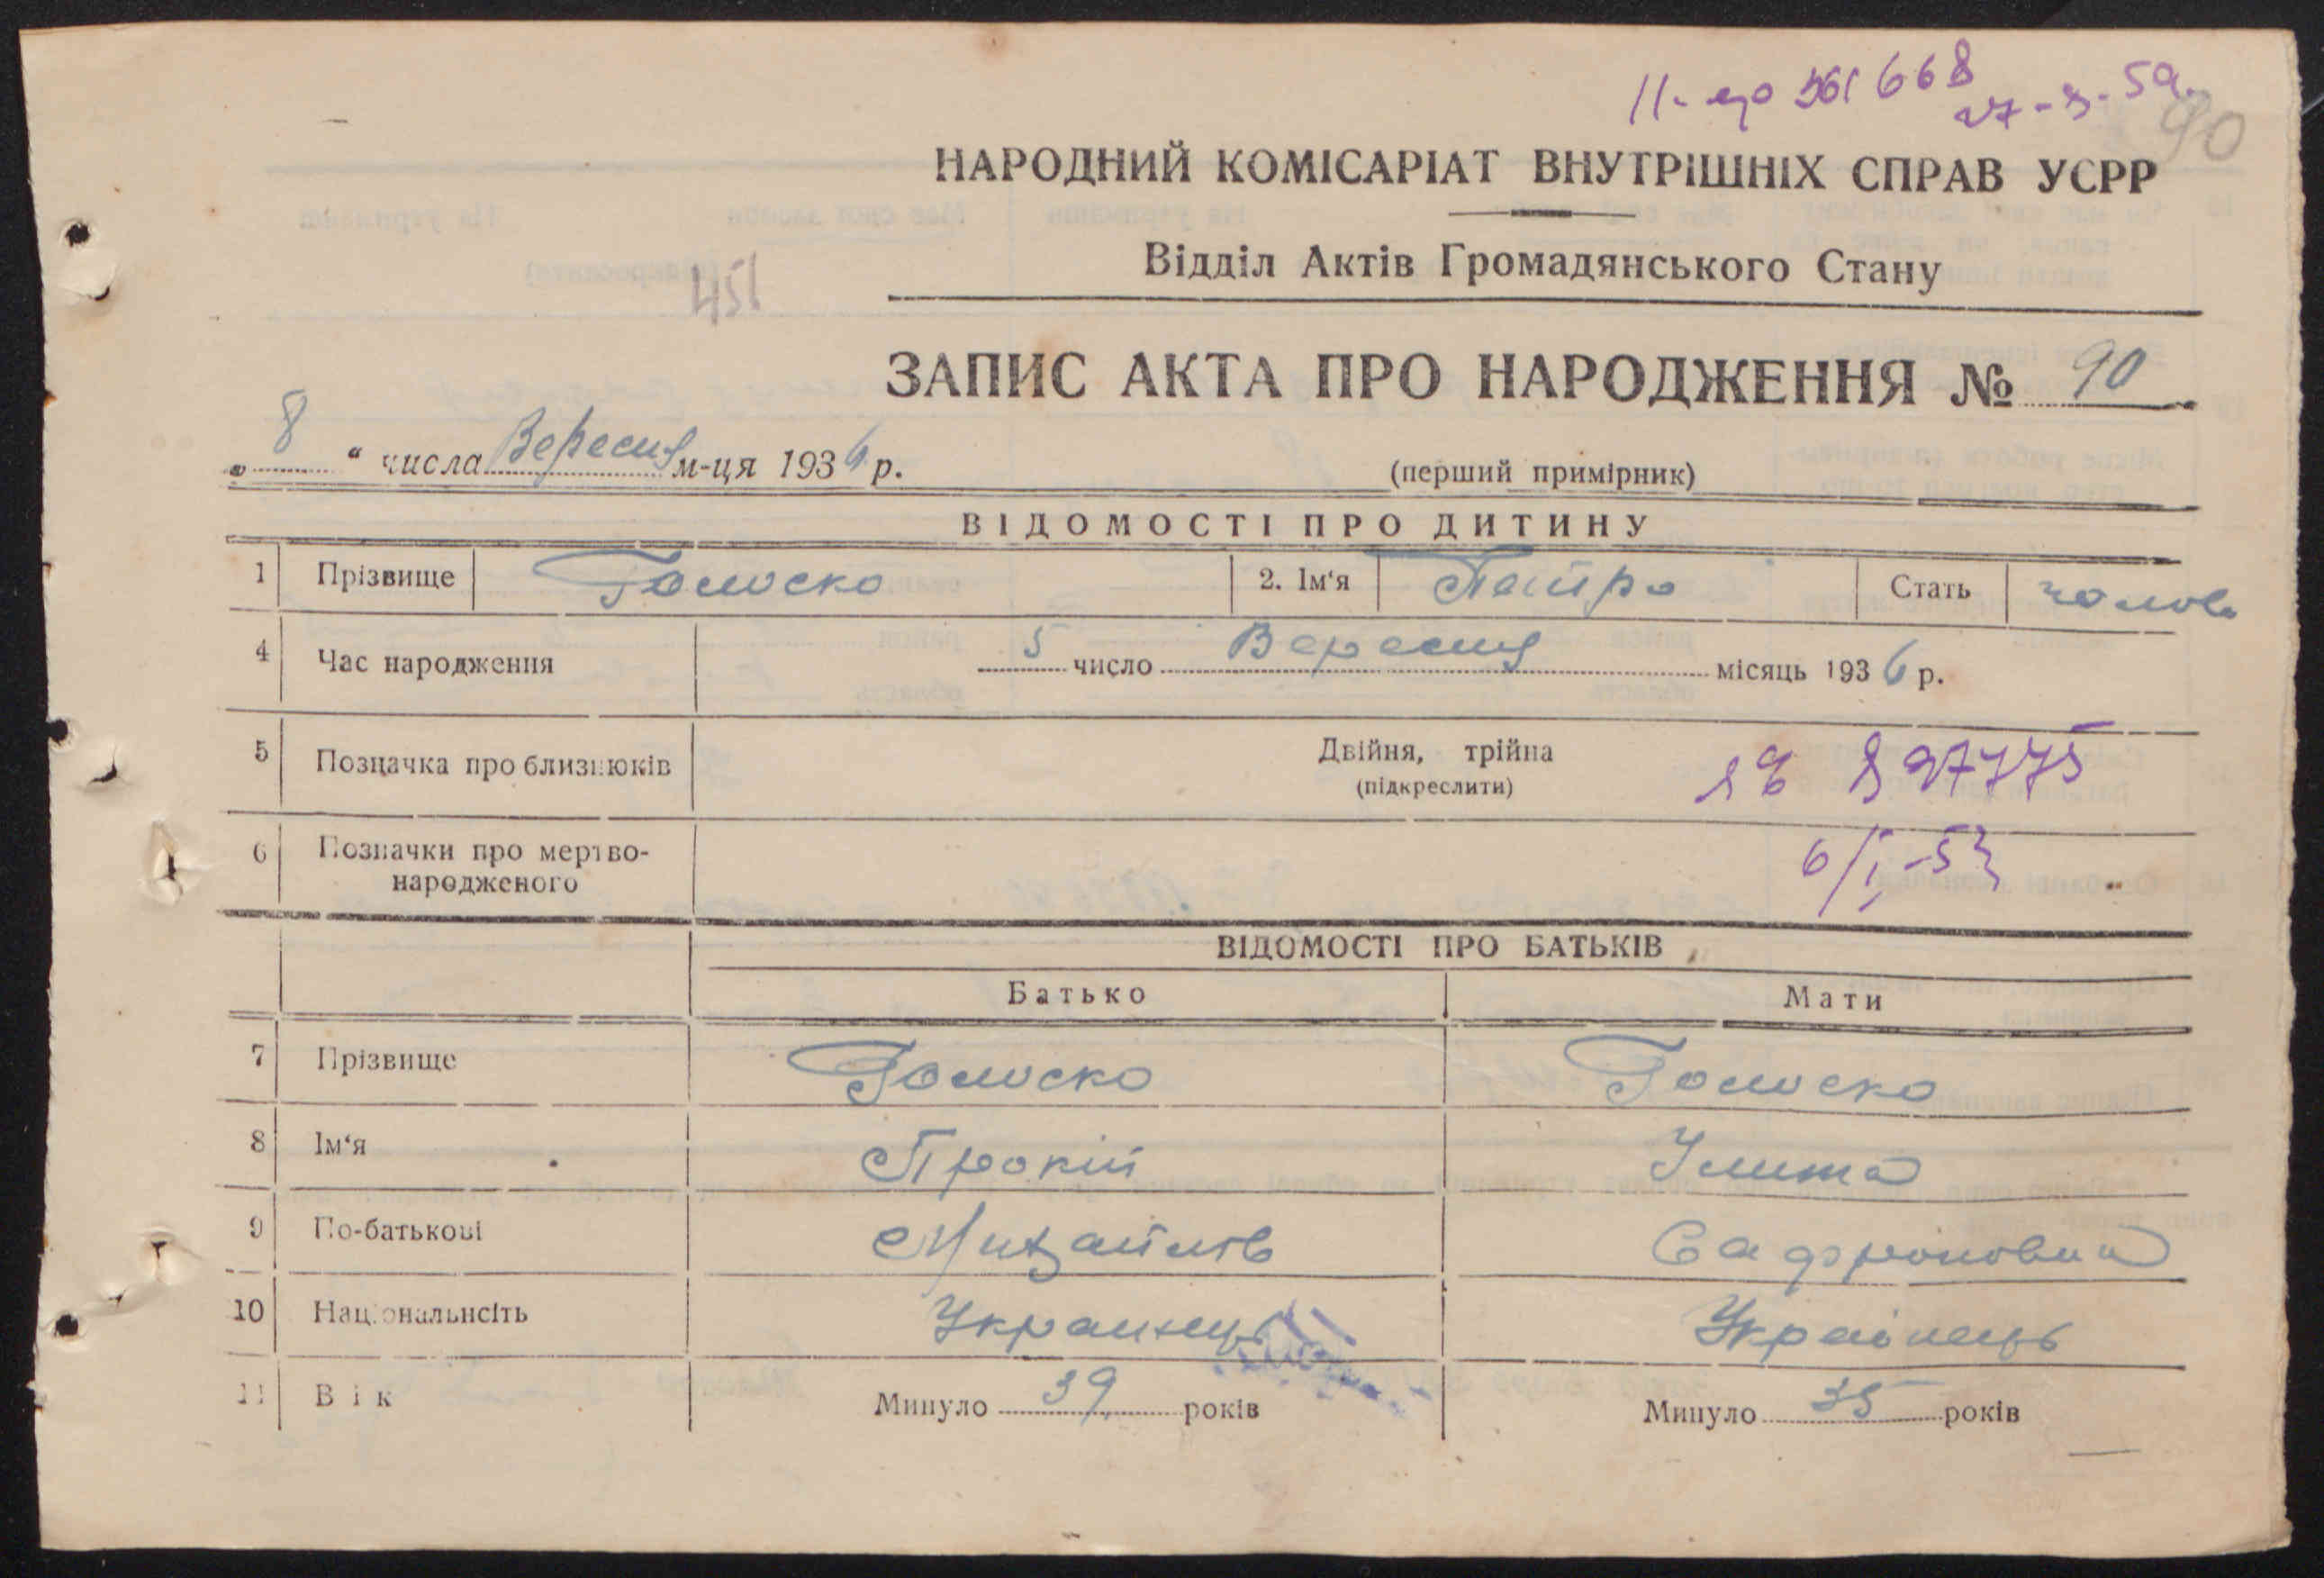 90
НАРОДНИЙ КОМІСАРІАТ ВНУТРІШНІХ СПРАВ УСРР
Відділ Актів Громадянського Стану
451
ЗАПИС АКТА ПРО НАРОДЖЕННЯ № 90
„ 8 “ числа Вересня м-ця 1936 р.
(перший примірник)
ВІДОМОСТІ ПРО ДИТИНУ
1 Прізвище Голоско 2. Ім'я Петро Стать чолов.
4 Час народження 5 число Вересня місяць 1936 р.
5 Позначка про близнюків Двійня, трійна
(підкреслити)
6/I-53
6 Позначки про мертво-
народженого
ВІДОМОСТІ ПРО БАТЬКІВ
Батько Мати
7 Прізвище Голоско Голоско
8 Ім'я Прокіп Улита
9 По-батькові Михайлів Сафроновна
10 Національнсіть Украинець Украінець
11 Вік Минуло 39 років Минуло 35 років